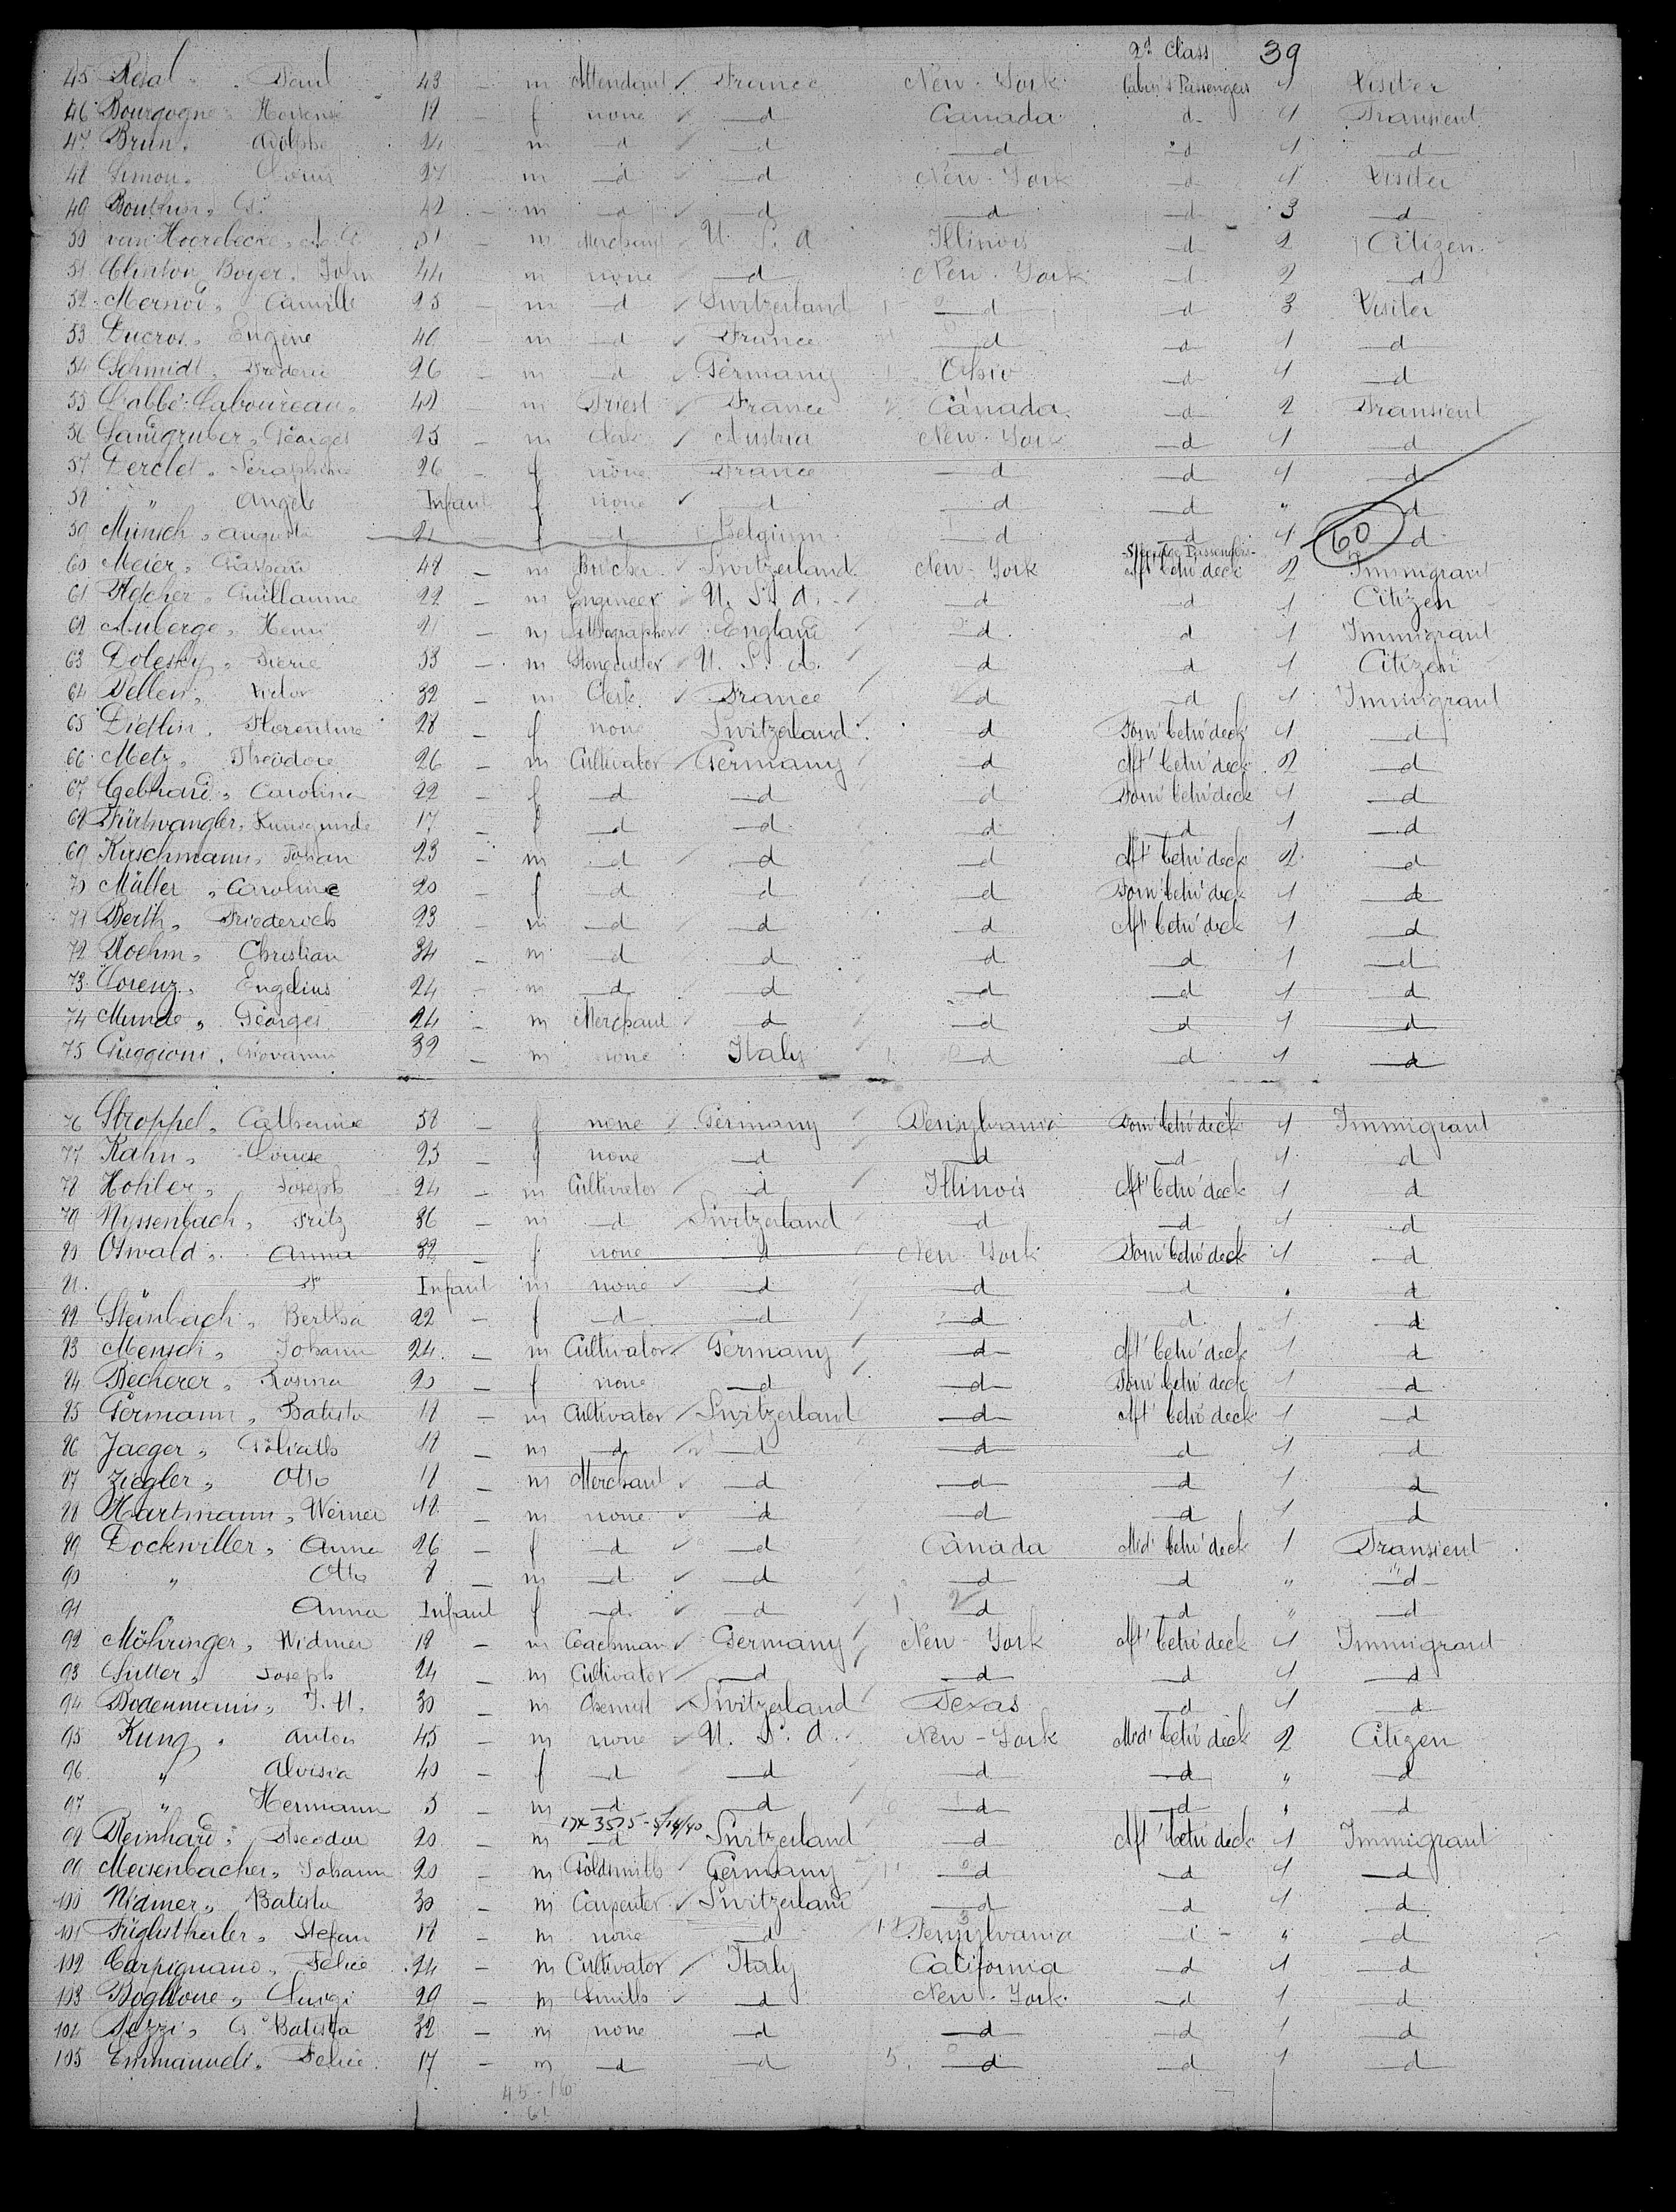 2d Class 39
45 Resal Paul 43 - m Attendant France New-York Cabin's Passengers 1 Visiter
46 Bourgogne Hortense 18 - f none d Canada d 1 Transient
47 Brun, Adolphe 24 - m d d d d 1 d
48 Simon, Louis 27 - m d d New-York d 1 Visiter
49 42 - m d d d d 3 d
50 van Hoorebecke 51 - m Merchant U. S. A Illinois d 2 Citizen
51 Clinton Boyer, John 44 m none d New-York d 2 d
52 Camille 25 - m d Switzerland d d 3 Visiter
53 Ducros, Eugène 40 - m d France d d 1 d
54 Schmidt, Frederic 26 - m d Germany Ohio d 1 d
55 L'abbé Laboureau 42 - m Priest France Canada d 2 Transient
56 Georges 25 - m Clerk Austria New-York d 1 d
57 Derclet, Séraphine 26 - f none France d d 1 d
58 " Angele Infant f none d d d " d
59 Münsch, Augusta 21 f d Belgium d d 1 d 60
-Steerage Passengers-
60 Meier, Gaspard 48 - m Butcher Switzerland New-York aft betw deck 2 Immigrant
61 Guillaume 22 - m Engineer U. S. A. d d 1 Citizen
62 Auberge, Henri 21 - m Lithographer England d d 1 Immigrant
63 Dolesky, Pierre 53 - m Stonecutter U. S. A. d d 1 Citizen
64 Pellen, Victor 32 - m Clerk France d d 1 Immigrant
65 Dietlin, Florentine 28 f none Switzerland d Forw betw deck 1 d
66 Metz, Théodore 26 - m Cultivator Germany d Aft betw deck 2 d
67 Gebhard, Carolina 22 - f d d d Forw betw deck 1 d
68 Fürtwangler, Kunegunde 17 - f d d d d 1 d
69 Kirschmann, Johan 23 - m d d d Aft betw deck 2 d
70 Müller, Caroline 20 - f d d d Forw betw deck 1 d
71 Berth, Friederich 23 - m d d d Aft betw deck 1 d
72 Roehm, Christian 34 - m d d d d 1 d
73 Lorenz, Engelius 24 - m d d d d 1 d
74 Munde, Georges 24 - m Merchant d d d 1 d
75 Giovanni 32 - m none Italy d d 1 d
76 Stroppel, Catherine 58 - f none Germany Pensylvania Forw betw deck 1 Immigrant
77 Kahn, Louise 23 - f none d d d 1 d
78 Hohler, Joseph 24 - m Cultivator d Illinois Aft betw deck 1 d
79 Nyssenbach, Fritz 36 - m d Switzerland d d 1 d
80 Oswald, Anna 32 - f none d New-York Forw betw deck 1 d
81 " Infant m none d d d d
82 Steinbach, Bertha 22 - f d d d d 1 d
83 Mensch, Johann 24 - m Cultivator Germany d Aft betw deck 1 d
84 Becherer, Rosina 20 - f none d d Forw betw deck 1 d
85 Germann, Batista 18 - m Cultivator Switzerland d Aft betw deck 1 d
86 Jaeger, Goliath 18 - m d d d d 1 d
87 Ziegler, Otto 18 - m Merchant d d d 1 d
88 Hartmann, Werner 18 - m none d d d 1 d
89 Dockwiller, Anna 26 - f d d Canada Mid betw deck 1 Transient
90 " Otto 8 - m d d d d " d
91 Anna Infant f d d d d " d
92 Möhringer, Widmer 18 - m Coachman Germany New-York Aft betw deck 1 Immigrant
93 Sutter, Joseph 24 - m Cultivator d d d 1 d
94 Bodenmann, J. U. 30 - m Chemist Switzerland Texas d 1 d
95 Kung, Anton 45 - m none U. S. A. New-York Mid betw deck 2 Citizen
96 " Aloisia 40 - f d d d d " d
97 " Hermann 5 - m d d d d " d
17X 3575 - 5/14/40
98 Reinhard, Theodor 20 - m d Switzerland d Aft betw deck 1 Immigrant
99 Meisenbacher, Johann 20 - m Goldsmith Germany d d 1 d
100 Widmer, Batista 30 - m Carpenter Switzerland d d 1 d
101 Stefan 18 - m none d Pensylvania d " d
102 Carpignano, Felice 24 - m Cultivator Italy California d 1 d
103 Boglione, Luigi 29 - m Smith d New-York d 1 d
104 Pezzi, G. Batista 32 - m none d d d 1 d
105 Emmanueli, Felice 17 - m d d d d 1 d